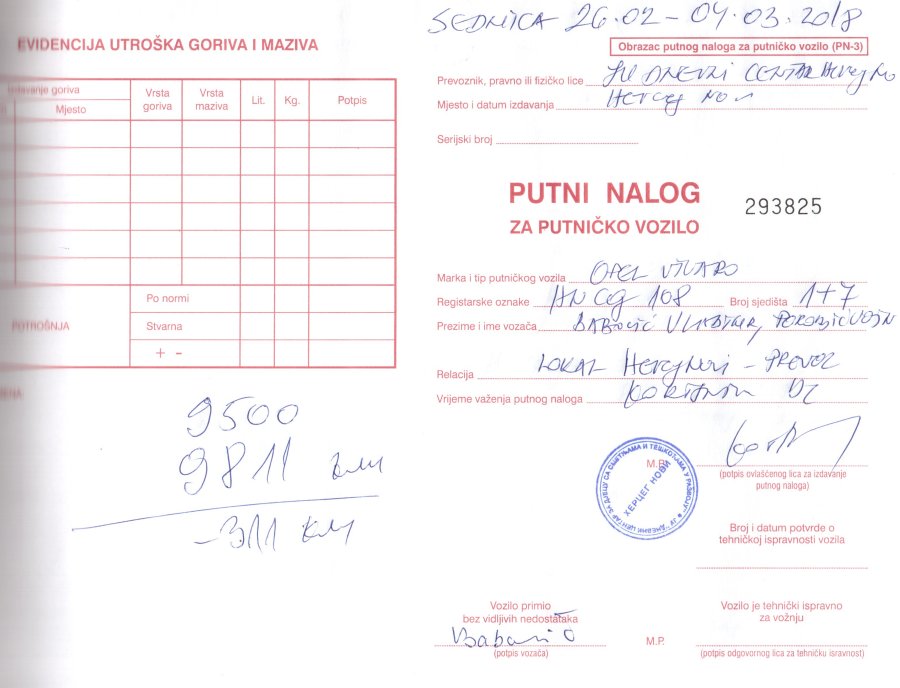 EVIDENCIJA UTROŠKA GORIVA I MAZIVA
goriva
Mjesto
Vrsta goriva
Vrsta maziva
Lit.
Kg.
Potpis
POTROŠNJA
Po normi
Stvarna
+ -
9500
9811 km
-311 km
SEDMICA 26.02 - 04.03.2018
Obrazac putnog naloga za putničko vozilo (PN-3)
Prevoznik, pravno ili fizičko lice JU DNEVNI CENTAR Herceg No
Mjesto i datum izdavanja Herceg Novi
Serijski broj
PUTNI NALOG
293825
ZA PUTNIČKO VOZILO
Marka i tip putničkog vozila OPEL VIVARO
Registarske oznake HN CG 108 Broj sjedišta 1+7
Prezime i ime vozača
Relacija LOKAL Herceg Novi - PREVOZ
Vrijeme važenja putnog naloga KORISNIKA DC
ЈУ "ДНЕВНИ ЦЕНТАР ЗА ДЈЕЦУ СА СМЕТЊАМА И ТЕШКОЋАМА У РАЗВОЈУ"
ХЕРЦЕГ НОВИ
M.P.
(potpis ovlašćenog lica za izdavanje
putnog naloga)
Broj i datum potvrde o
tehničkoj ispravnosti vozila
Vozilo primio
bez vidljivih nedostataka
(potpis vozača)
M.P.
Vozilo je tehnički ispravno
za vožnju
(potpis odgovornog lica za tehničku isravnost)